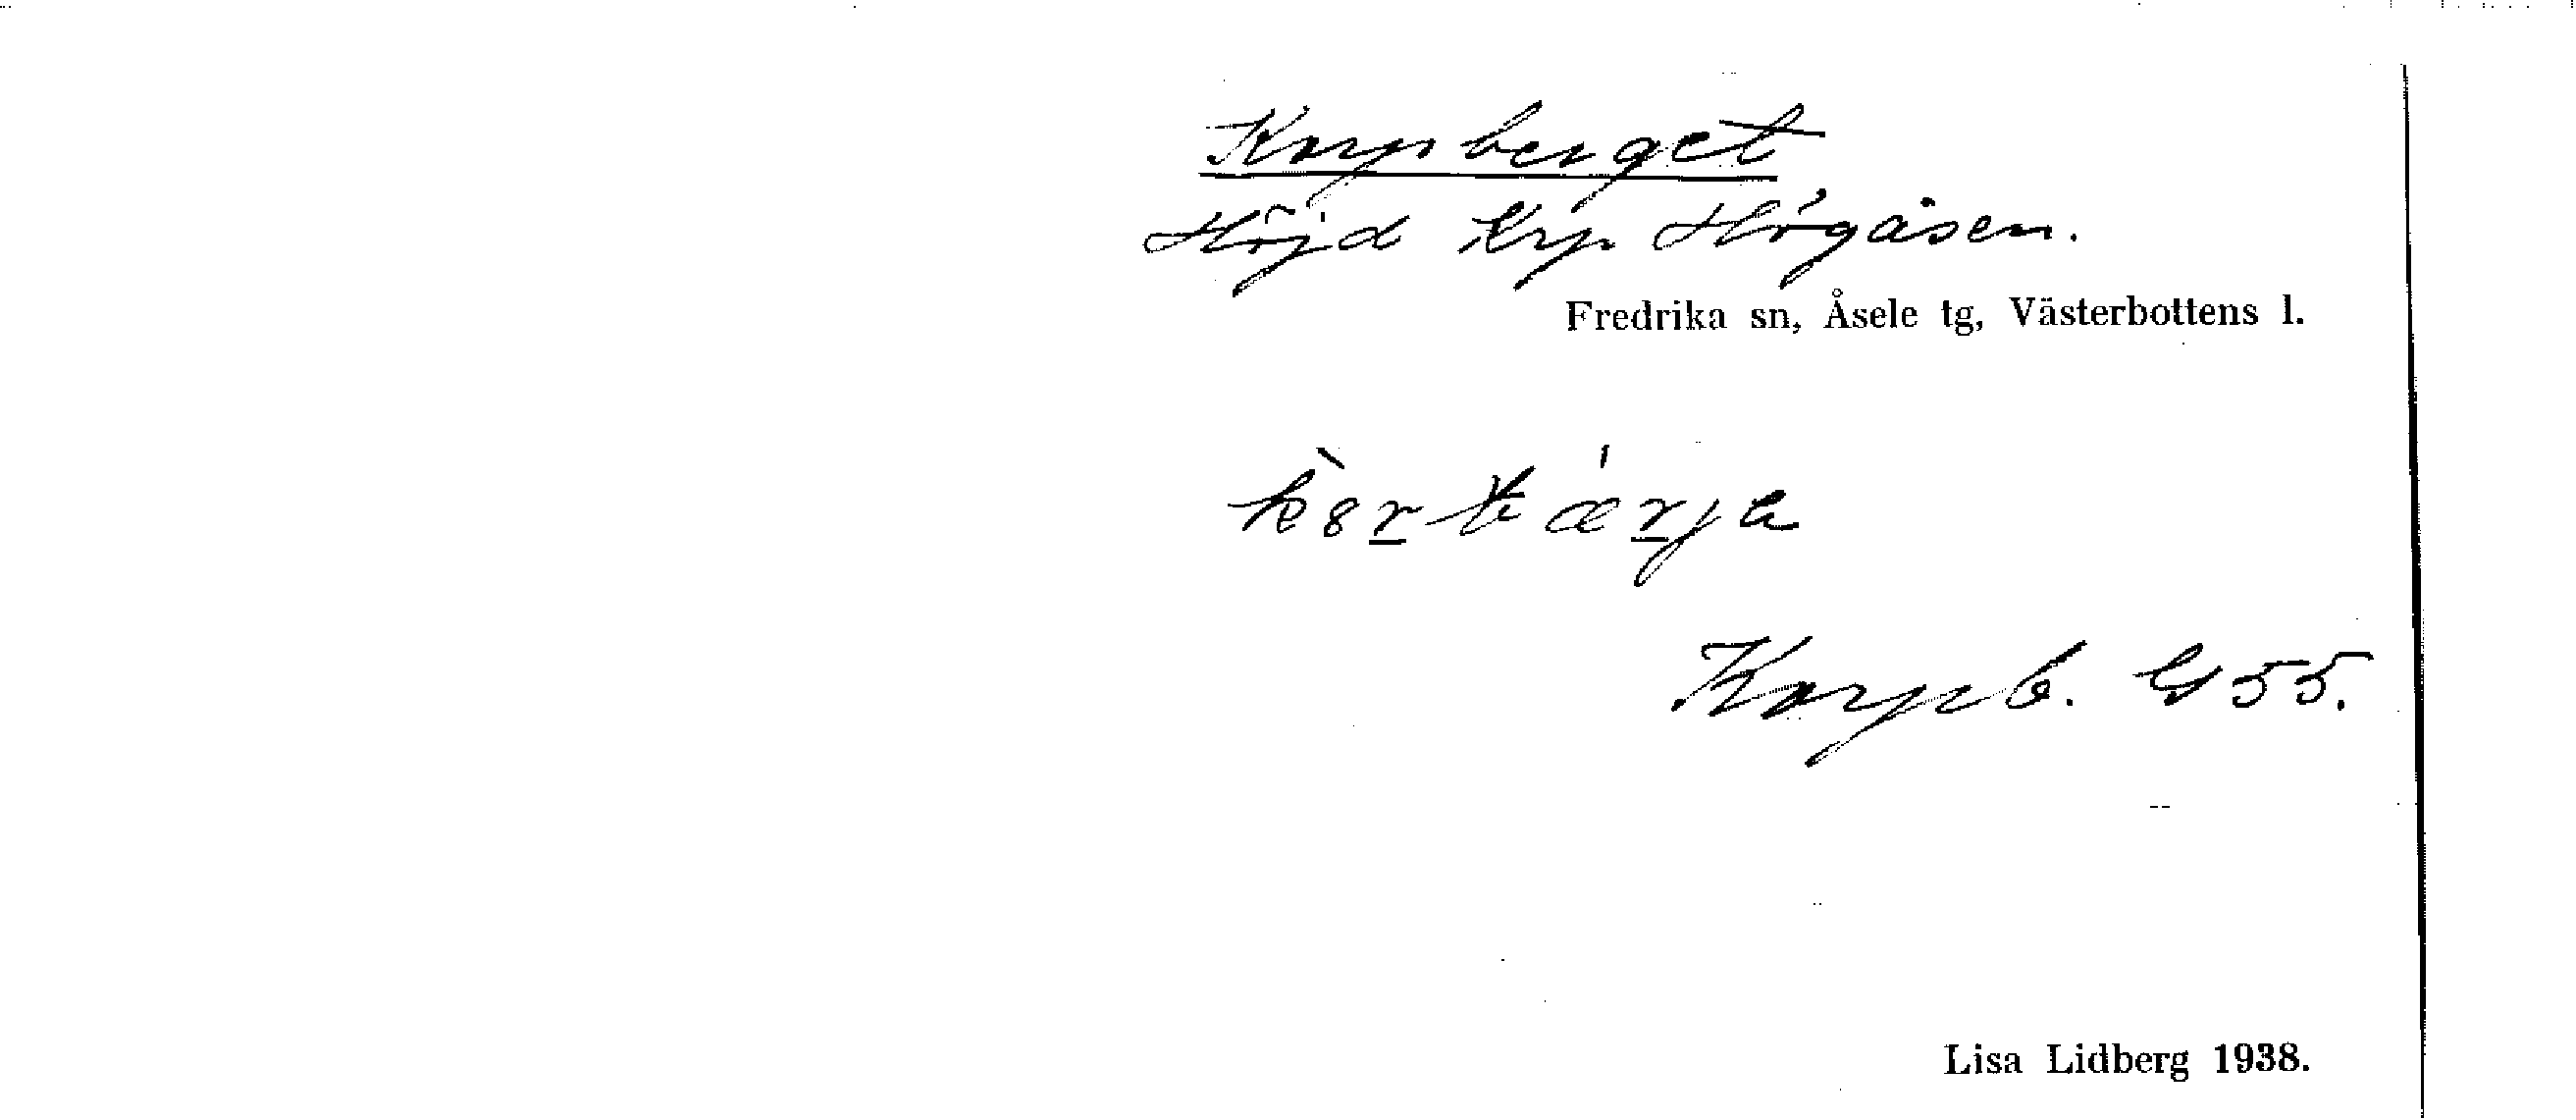 Korpberget
Höjd Krp Högåsen.
Fredrika sn, Åsele tg, Västerbottens l.
Korpb. G 55.
Lisa Lidberg 1938.